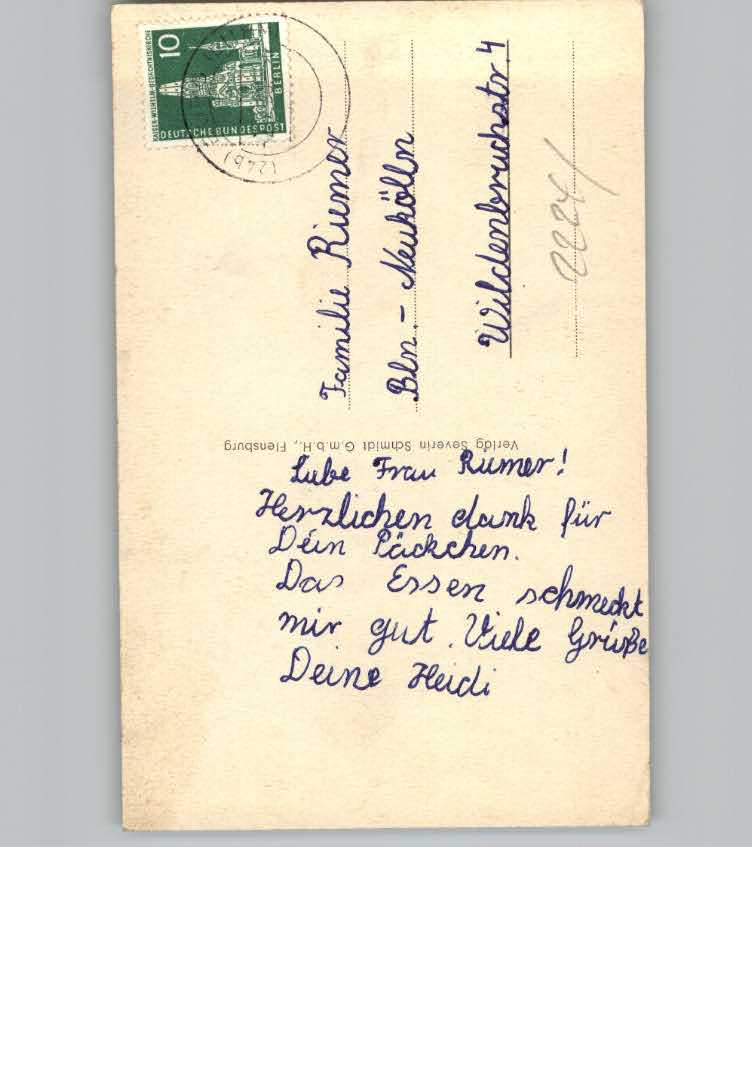 10
KAISER-WILHELM-GEDÄCHTNISKIRCHE
BERLIN
DEUTSCHE BUNDESPOST
(24b)
Familie Riemer
Bln. - Neukölln
Wildenbruchstr. 4
Verlag Severin Schmidt G.m.b.H., Flensburg
Liebe Frau Riemer!
Herzlichen dank für
Dein Päckchen.
Das Essen schmeckt
mir gut. Viele Grüße
Deine Heidi